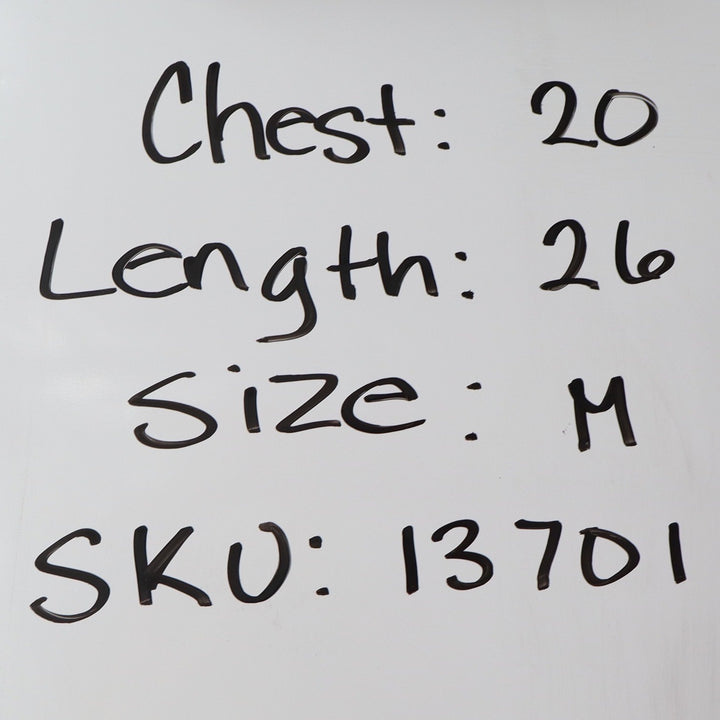 Chest: 20
Length: 26
Size: M
SKU: 13701